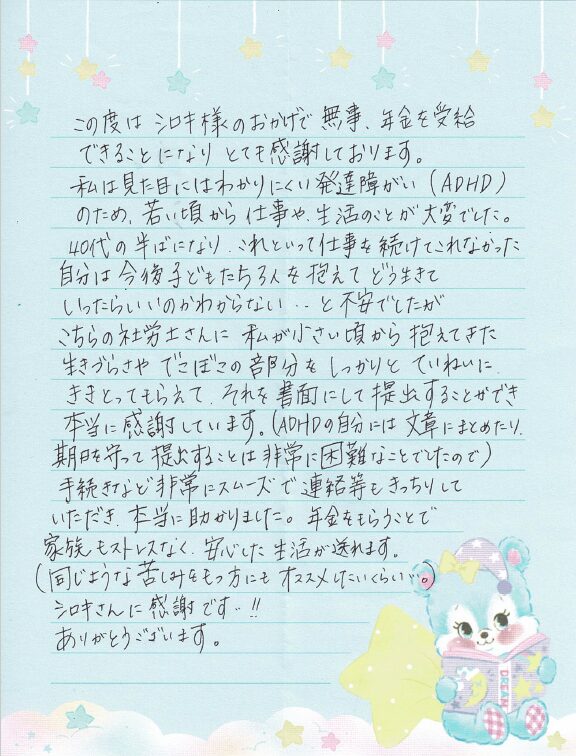 この度は シロキ様のおかげで 無事、年金を受給
できることになり とても感謝しております。
私は見た目にはわかりにくい発達障がい（ADHD）
のため、若い頃から仕事や、生活のことが大変でした。
40代の半ばになり、これといって仕事を続けてこれなかった
自分は今後子どもたち3人を抱えて どう生きて
いったらいいのかわからない‥と不安でしたが
こちらの社労士さんに 私が小さい頃から 抱えてきた
生きづらさや でこぼこの部分を しっかりと ていねいに
ききとってもらえて、それを書面にして提出することができ
本当に感謝しています。（ADHDの自分には 文章にまとめたり、
期日を守って 提出することは 非常に困難なことでしたので）
手続きなど 非常にスムーズで 連絡等も きっちりして
いただき、本当に助かりました。年金をもらうことで
家族もストレスなく、安心した 生活が送れます。
（同じような苦しみをもつ方にも オススメしたいくらい…。）
シロキさんに感謝です‥!!
ありがとうございます。
DREAM